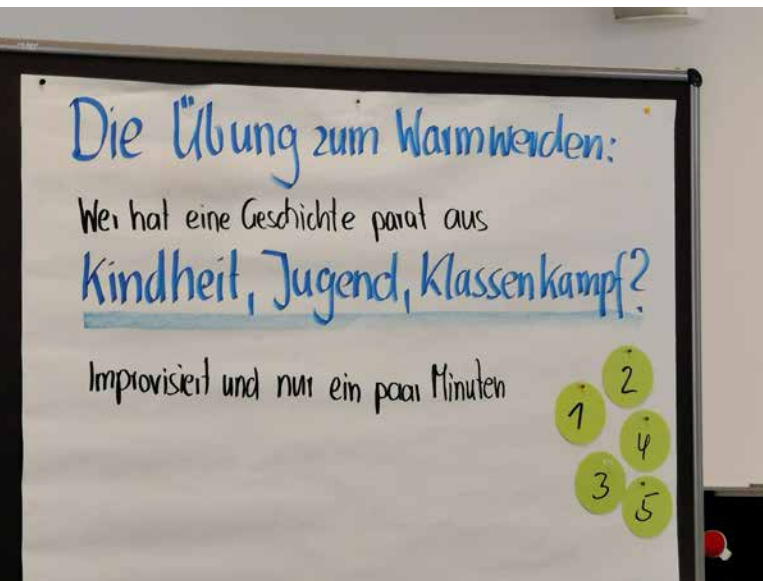 Die Übung zum Warmwerden:
Wer hat eine Geschichte parat aus
Kindheit, Jugend, Klassenkampf?
Improvisiert und nur ein paar Minuten
2
1
4
3
5